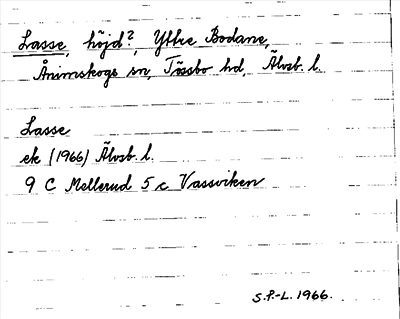 Lasse, höjd?, Yttre Bodane,
Ånimskogs sn, Tössbo hd, Älvsb. l.
Lasse
ek (1966) Älvsb. l.
9 C Mellerud 5 c Vassviken
S.F.-L. 1966.